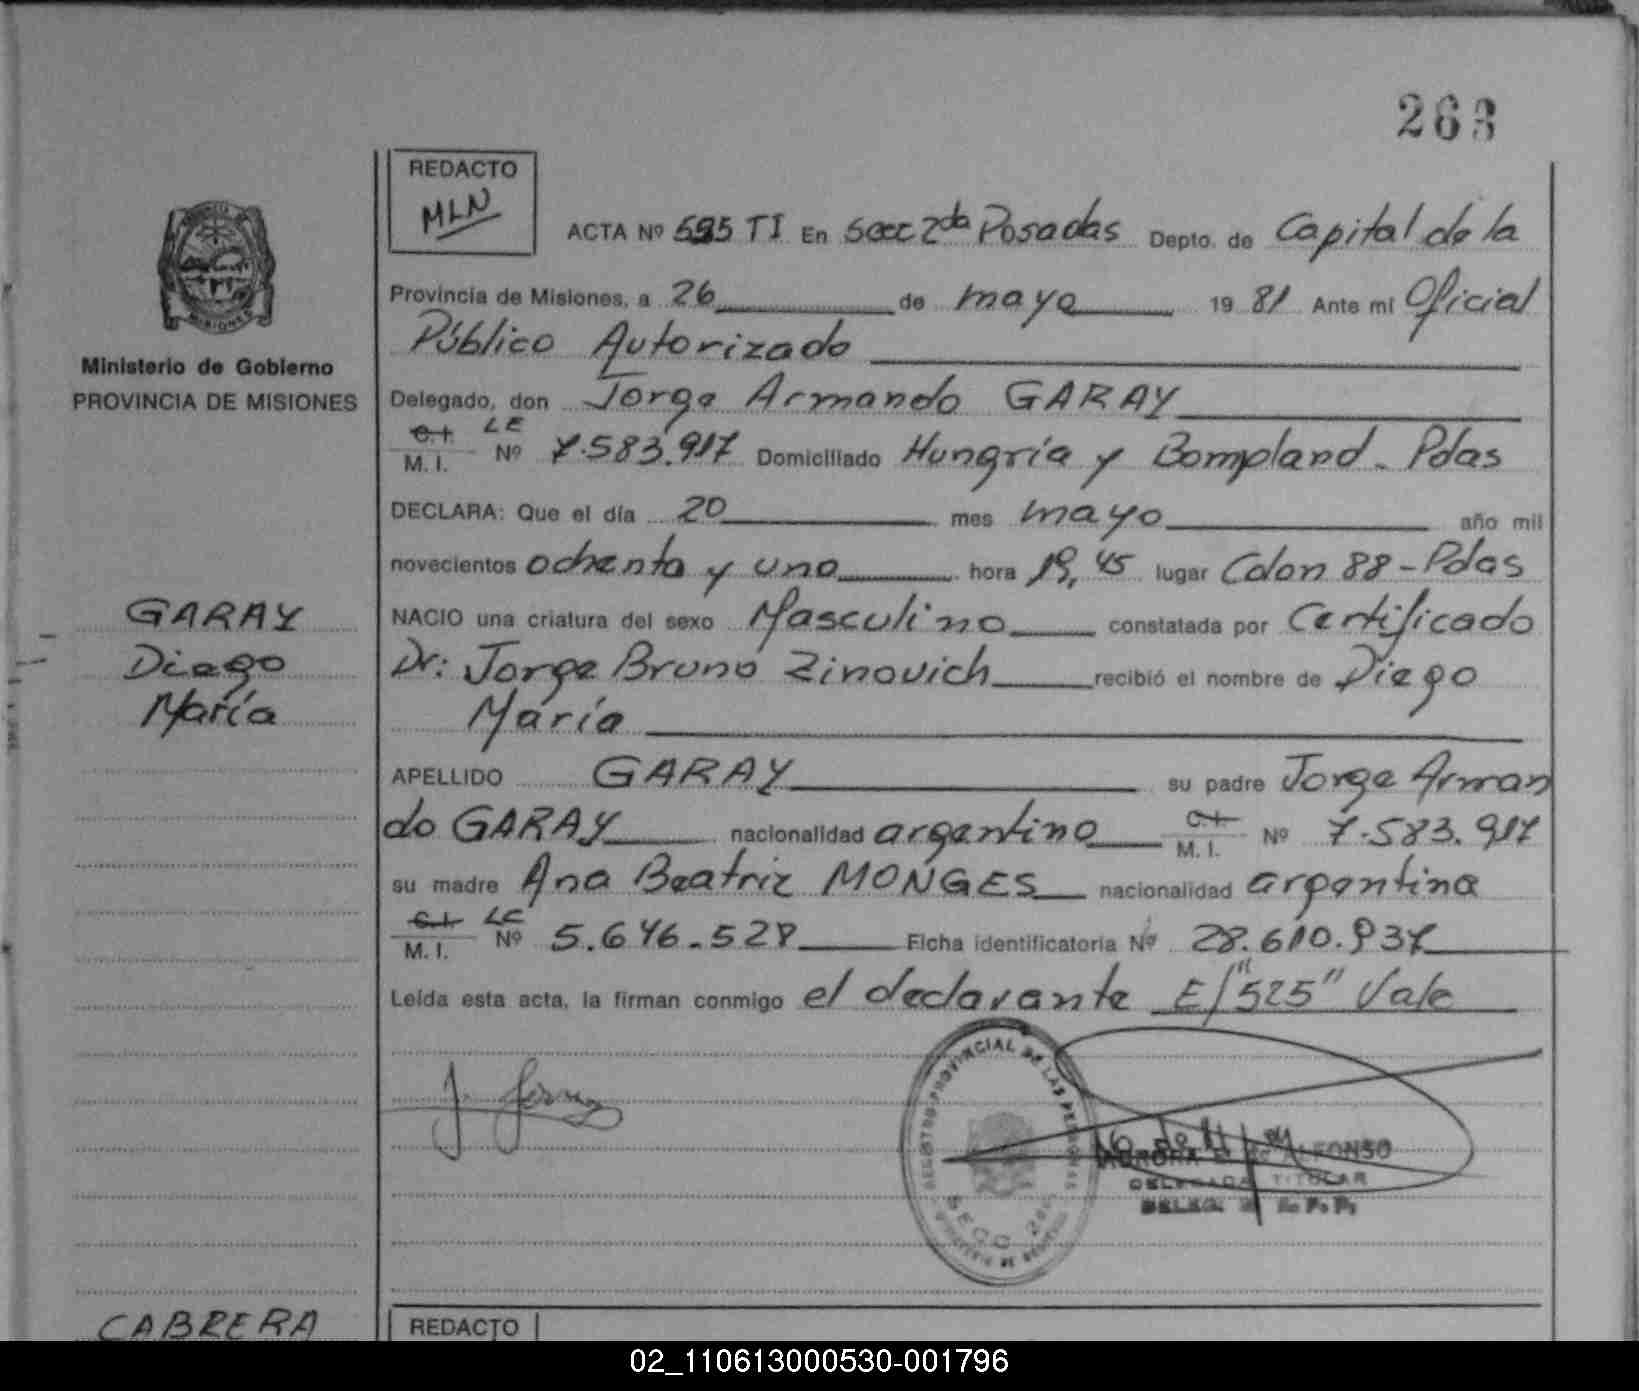 263
REDACTO
MLN
ACTA Nº 525 TI En Secc 2da Posadas Depto. de Capital de la
Provincia de Misiones, a 26 de mayo 1981 Ante mi Oficial
Ministerio de Gobierno
PROVINCIA DE MISIONES
Público Autorizado
Delegado, don Jorge Armando GARAY
C.I. LE
M. I. Nº 7.583.917 Domiciliado Hungría y Bompland - Pdas
DECLARA: Que el día 20 mes mayo año mil
novecientos ochenta y uno hora 19,45 lugar Colon 88 - Pdas
GARAY
Diego
María
NACIO una criatura del sexo Masculino constatada por Certificado
Dr: Jorge Bruno Zinovich recibió el nombre de Diego
María
APELLIDO GARAY su padre Jorge Arman
do GARAY nacionalidad argentino C.I. M. I. Nº 7.583.917
su madre Ana Beatriz MONGES nacionalidad argentina
C.I. LC
M. I. Nº 5.646.528 Ficha identificatoria Nº 28.610.937
Leída esta acta, la firman conmigo el declarante E/"525" Vale
REGISTRO PROVINCIAL DE LAS PERSONAS
ALFONSO
DELEGADA TITULAR
CABRERA
REDACTO
02_110613000530-001796